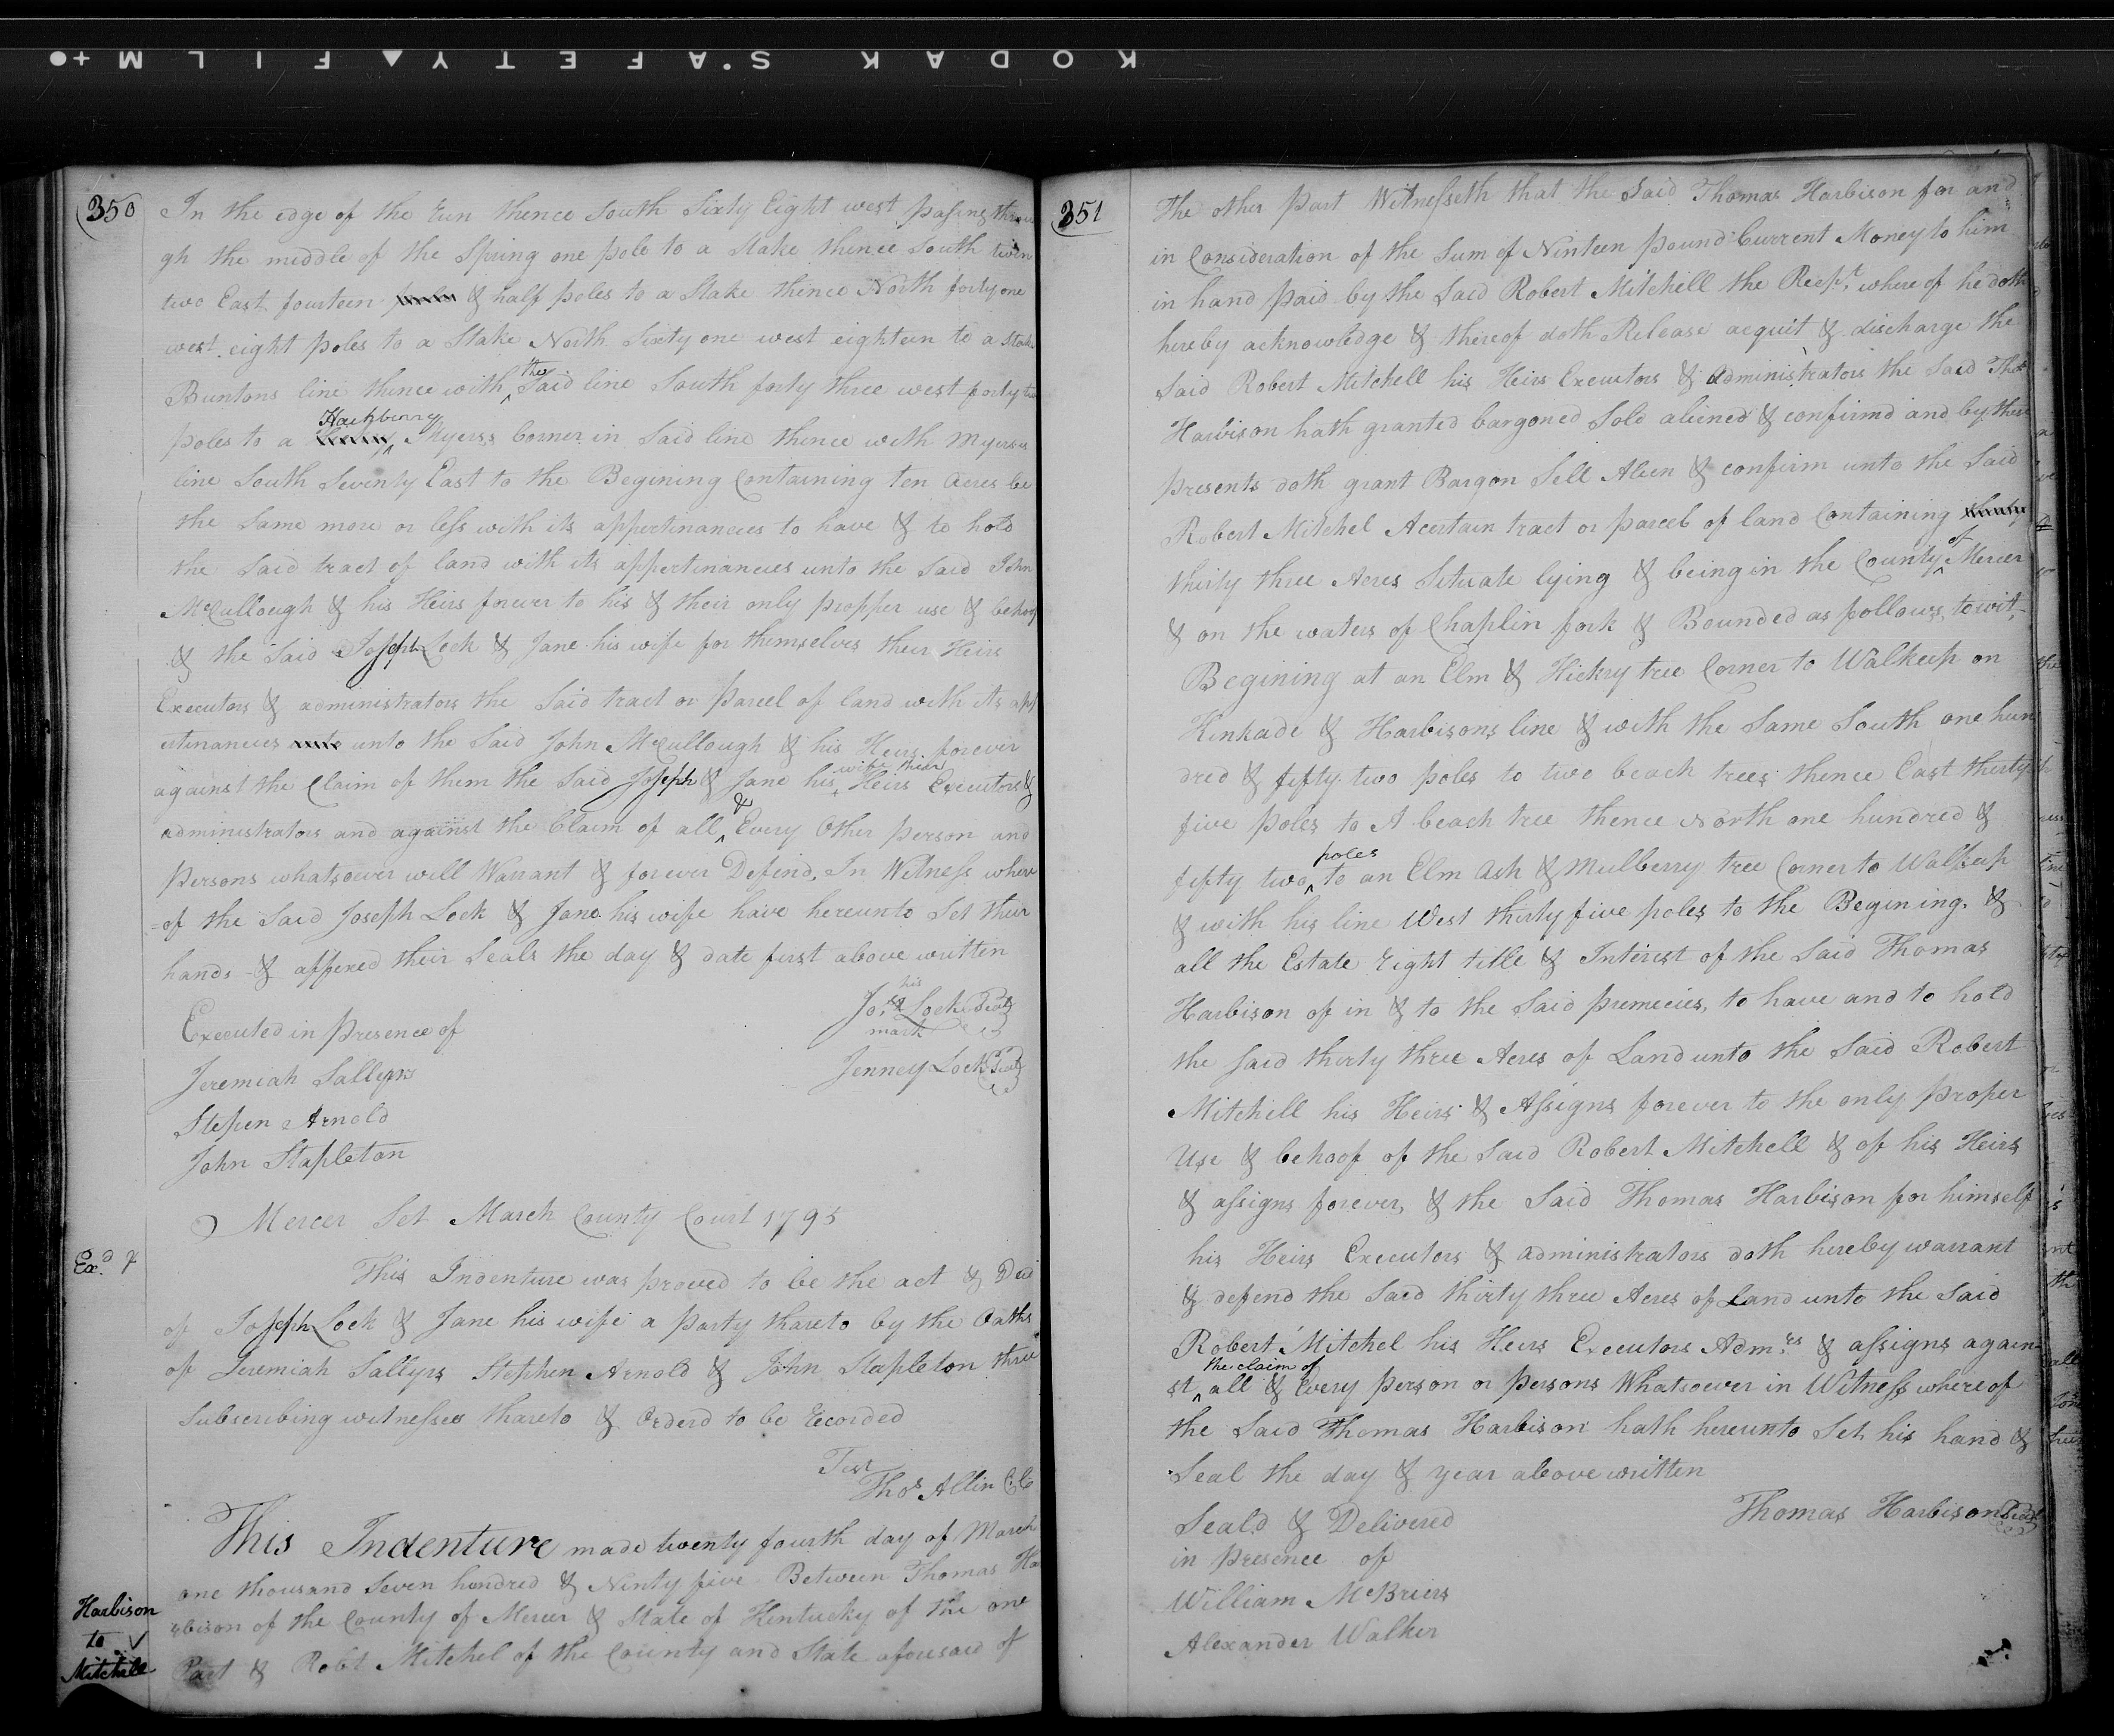 KODAK S'AFETY▲FILM +●
350
In the edge of the run thence South Sixty Eight west passing throu
gh the middle of the Spring one pole to a Stake thence South twen
two East fourteen & half poles to a Stake thence North forty one
west eight poles to a Stake North Sixty one west eighteen to a Stake
Buntons line thence with the Said line South forty three west forty two
poles to a Hackberry Myerss Corner in Said line thence with Myerses
line South Seventy East to the Begining Containing ten Acres be
the Same more or less with its appertinancies to have & to hold
the Said tract of land with its appertinancies unto the Said John
McCullough & his Heirs forever to his & their only propper use & behoof
& the Said Joseph Lock & Jane his wife for themselves their Heirs
Executors & administrators the Said tract or Parcel of land with its app
ertinancies unto the Said John McCullough & his Heirs forever
against the Claim of them the Said Joseph & Jane his wife their Heirs Executors &
administrators and against the Claim of all & Every Other person and
persons whatsoever will Warrant & forever Defend, In Witness where
=of the Said Joseph Lock & Jane his wife have hereunto Set their
hands & affixed their Seals the day & date first above written
Executed in presence of
Jos. his mark Lock Seal
Jeremiah Sallyrs
Jenney Lock Seal
Stepen Arnold
John Stapleton
Mercer Sct March County Court 1795
Exd
This Indenture was proved to be the act & Deed
of Joseph Lock & Jane his wife a party thareto by the Oaths
of Jeremiah Sallyrs Stephen Arnold & John Stapleton three
Subscribing witnesses thareto & Orderd to be recorded
Test
Thos Allin C.C
This Indenture made twenty fourth day of March
one thousand Seven hundred & Ninty five Between Thomas Ha
rbison of the County of Mercer & State of Kentucky of the one
Part & Robt Mitchel of the County and State aforesaid of
Harbison
to ✓
Mitchell
351
The other part Witnesseth that the Said Thomas Harbison for and
in Consideration of the Sum of Ninteen pound Current Money to him
in hand paid by the Said Robert Mitchell the Recpt. where of he doth
hereby acknowledge & thereof doth Release acquit & discharge the
Said Robert Mitchell his Heirs Executors & Administrators the Said Thos
Harbison hath granted bargoned Sold aliened & confirmd and by these
presents doth grant Bargon Sell Alien & confirm unto the Said
Robert Mitchel A certain tract or parcel of land Containing
thirty three Acres Situate lying & being in the County of Mercer
& on the waters of Chaplin fork & Bounded as follows, towit,
Begining at an Elm & Hickry tree Corner to Walkup on
Kinkade & Harbisons line & with the Same South one hun
dred & fifty two poles to two beach trees thence East thirty
five poles to A beach tree thence North one hundred &
fifty two poles to an Elm Ash & Mulberry tree Corner to Walkup
& with his line West thirty five poles to the Begining. &
all the Estate right title & Interest of the Said Thomas
Harbison of in & to the Said premecies, to have and to hold
the Said thirty three Acres of Land unto the Said Robert
Mitchell his Heirs & Assigns forever to the only proper
Use & behoof of the Said Robert Mitchell & of his Heirs
& assigns forever, & the Said Thomas Harbison for himself
his Heirs Executors & administrators doth hereby warrant
& defend the Said thirty three Acres of Land unto the Said
Robert Mitchel his Heirs Executors Admrs & assigns again
st the claim of all & Every person or persons Whatsoever in Witness where of
the Said Thomas Harbison hath hereunto Set his hand &
Seal the day & year above written
Seald & Delivered
Thomas Harbison Seal
in presence of
William McBriers
Alexander Walker